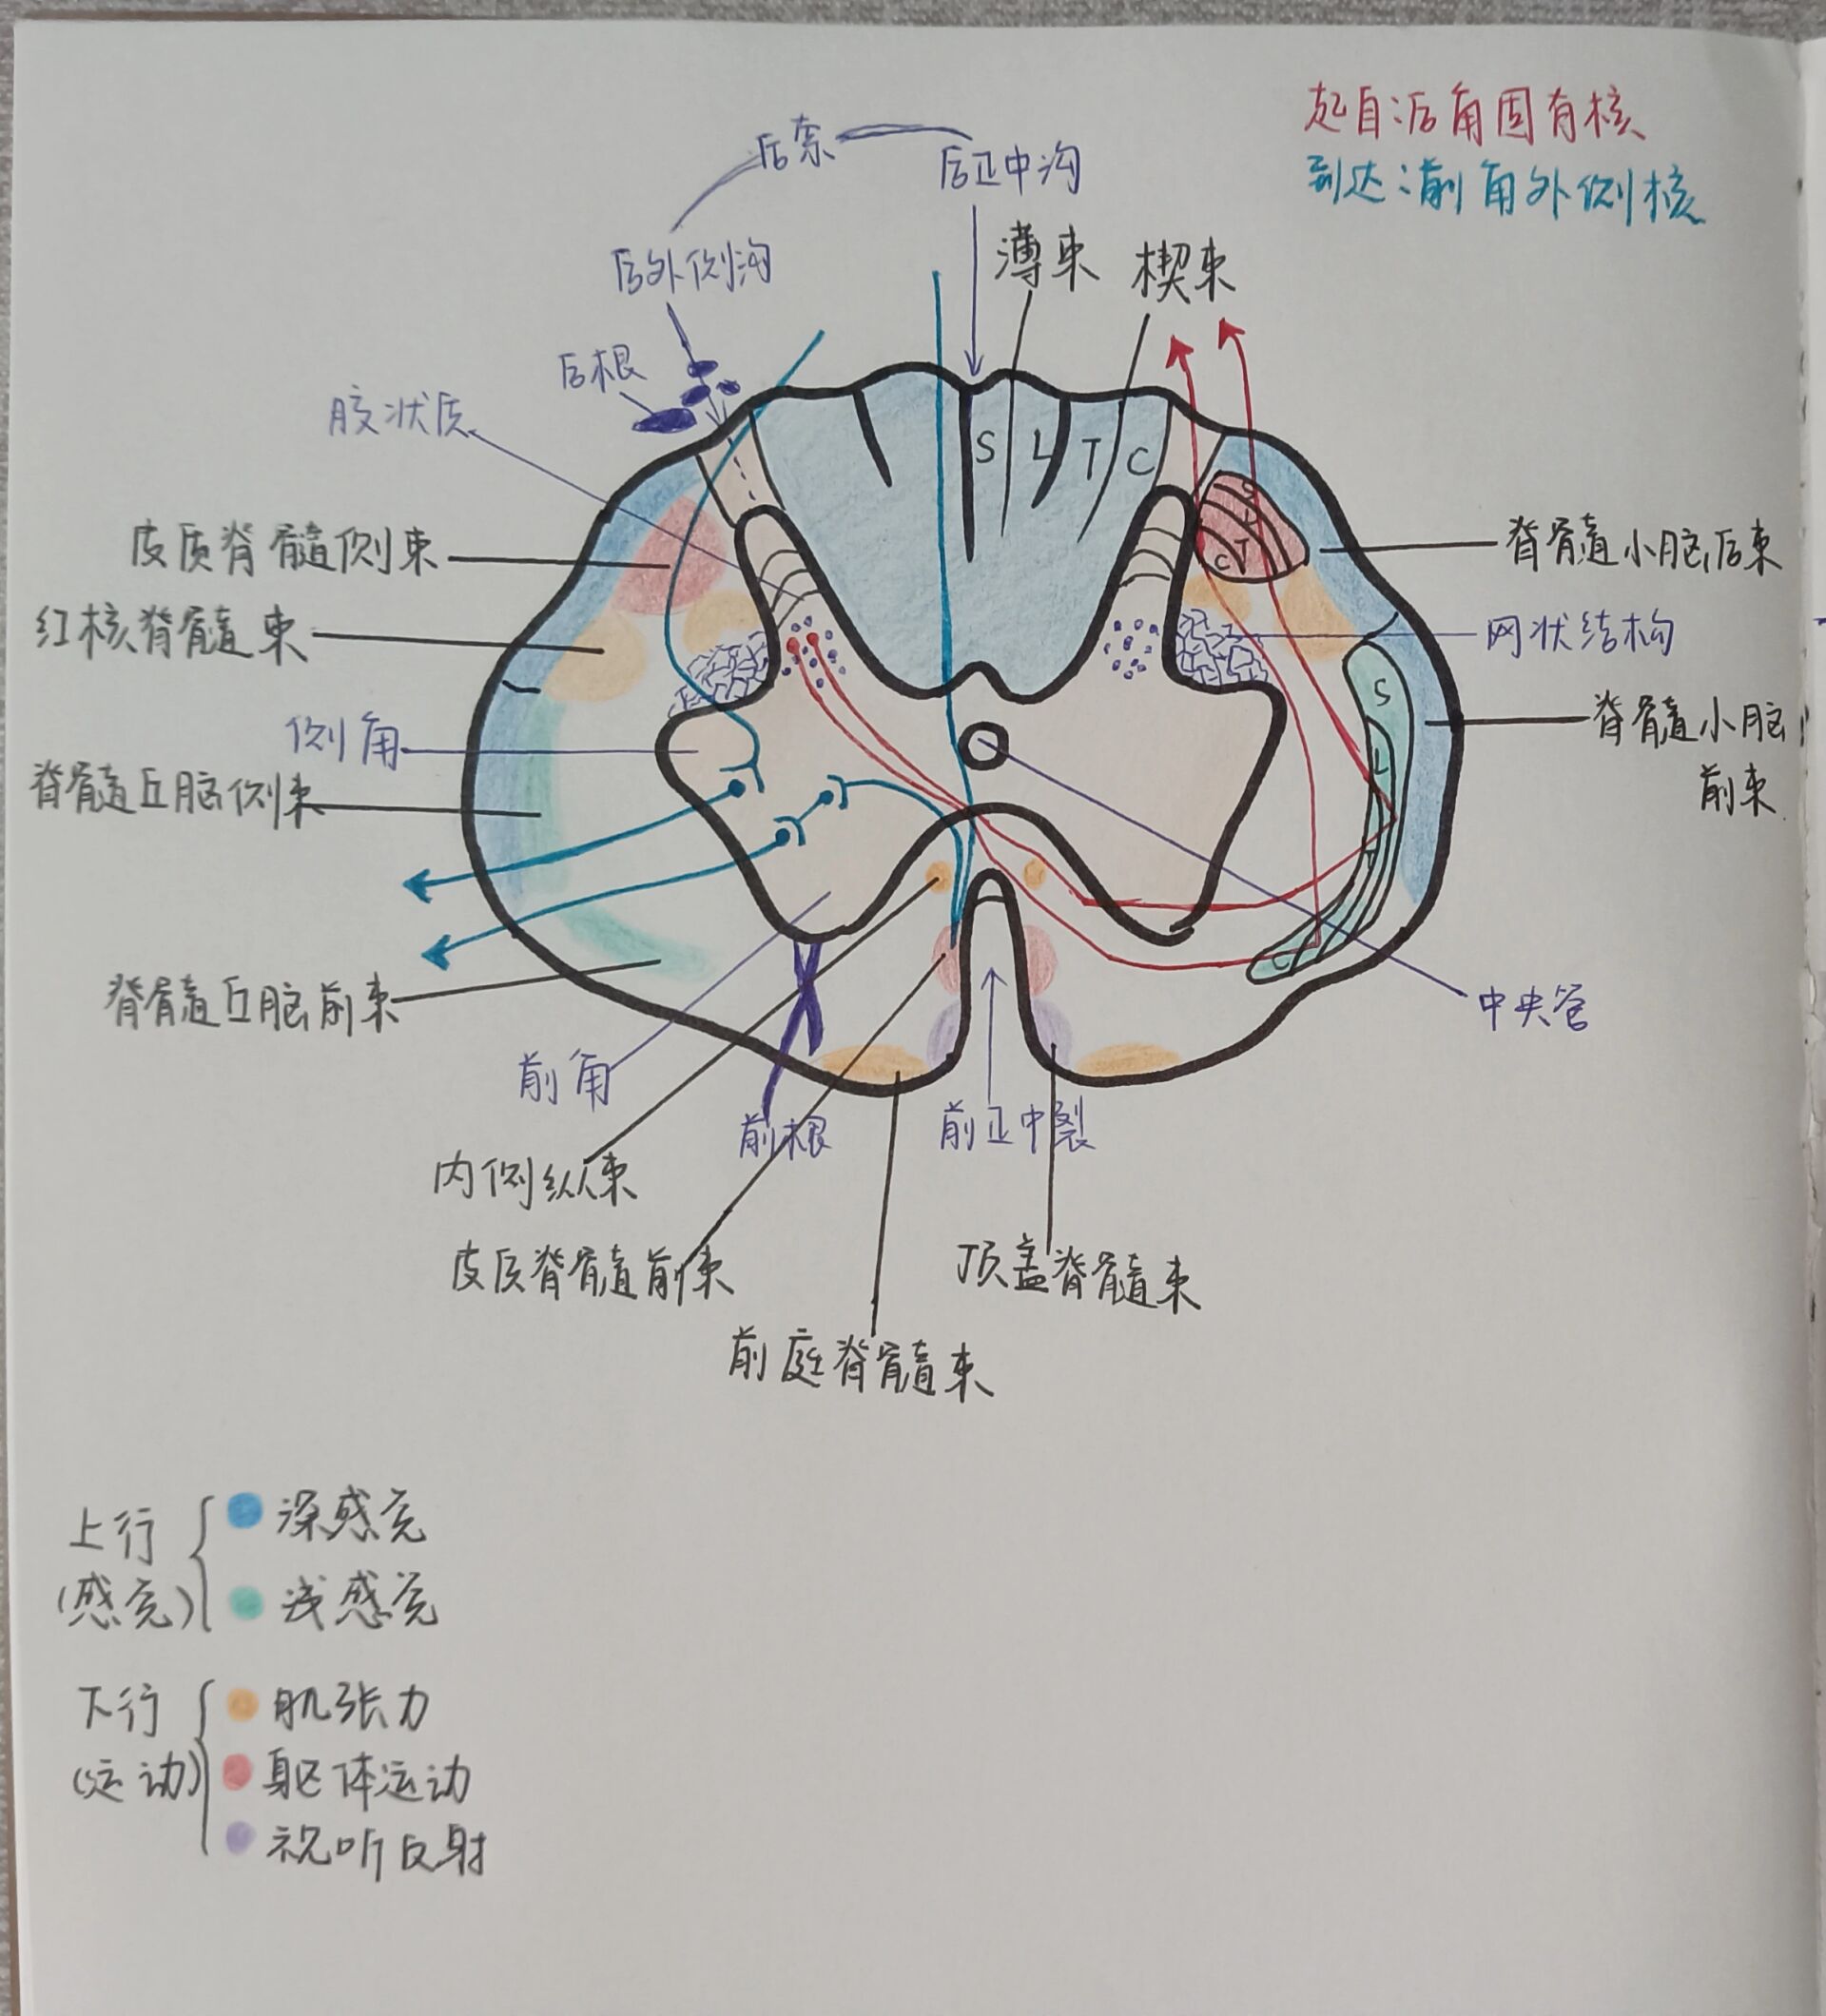 起自:后角固有核
到达:前角外侧核
后索
后正中沟
后外侧沟
薄束
楔束
后根
胶状质
S L T C
皮质脊髓侧束
S
L
C T
脊髓小脑后束
红核脊髓束
网状结构
侧角
S
L
T
C
脊髓小脑
前束
脊髓丘脑侧束
脊髓丘脑前束
中央管
前角
前根
前正中裂
内侧纵束
皮质脊髓前束
顶盖脊髓束
前庭脊髓束
上行
(感觉)
深感觉
浅感觉
下行
(运动)
肌张力
躯体运动
视听反射